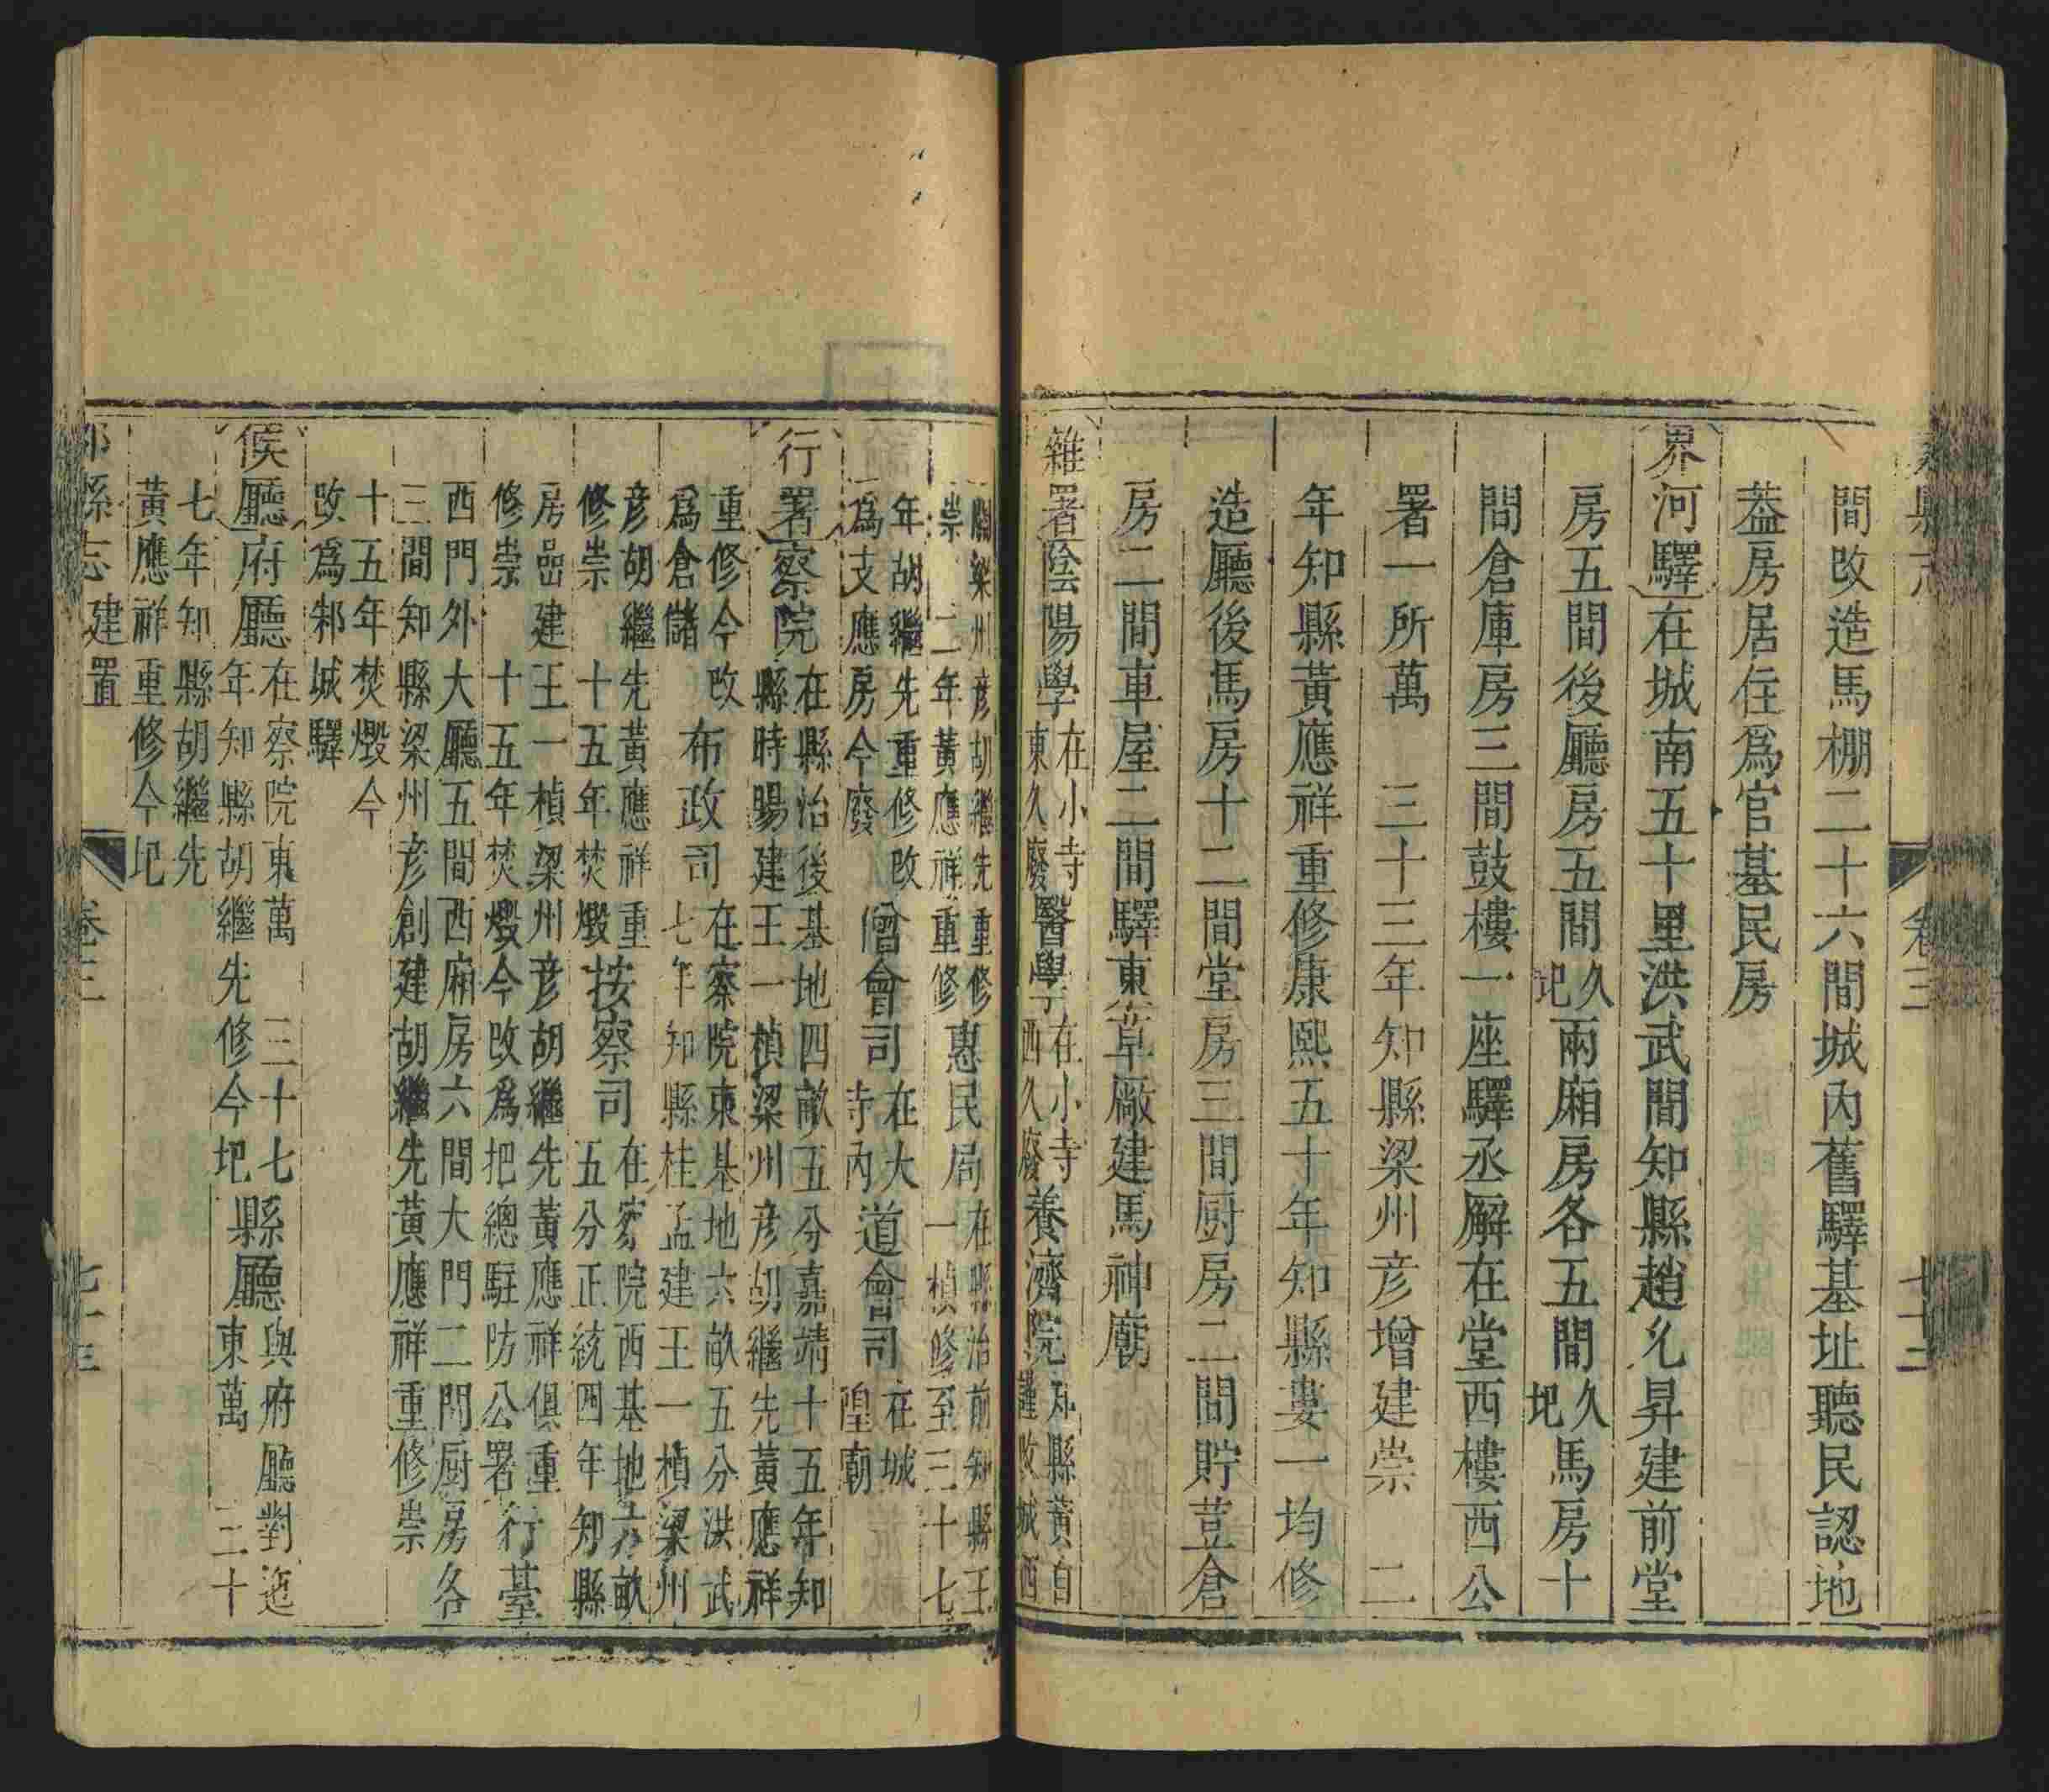 間改造馬棚二十六間城內舊驛基址聽民認地
葢房居住爲官基民房
界河驛在城南五十里洪武間知縣趙允昇建前堂
房五間後廳房五間久圮兩廂房各五間久圮馬房十
間倉庫房三間鼓樓一座驛丞廨在堂西樓西公
署一所萬 三十三年知縣梁州彦增建崇 二
年知縣黃應祥重修康熙五十年知縣婁一均修
造廳後馬房十二間堂房三間厨房二間貯荳倉
房二間車屋二間驛東草廠建馬神廟
雜署陰陽學在小寺東久廢醫學在小寺西久廢養濟院知縣黃自謹改城西
關梁州彦胡繼先重修崇 二年黃應祥重修惠民局在縣治前知縣王一楨修至三十七
年胡繼先重修改爲支應房今廢僧會司在大寺內道會司在城隍廟
行署察院在縣治後基地四畝五分嘉靖十五年知縣時賜建王一楨梁州彦胡繼先黃應祥
重修今改爲倉儲布政司在察院東基地六畝五分洪武七年知縣桂孟建王一楨梁州
彦胡繼先黃應祥重修崇 十五年焚燬按察司在察院西基地五畝五分正統四年知縣
房嵒建王一楨梁州彦胡繼先黃應祥俱重修崇 十五年焚燬今改爲把總駐防公署行臺
西門外大廳五間西廂房六間大門二間厨房各三間知縣梁州彦創建胡繼先黃應祥重修崇
十五年焚燬今改爲邾城驛
候廳府廳在察院東萬 三十七年知縣胡繼先修今圮縣廳與府廳對迤東萬 三十
七年知縣胡繼先黃應祥重修今圮
縣志 建置 卷三 七十三